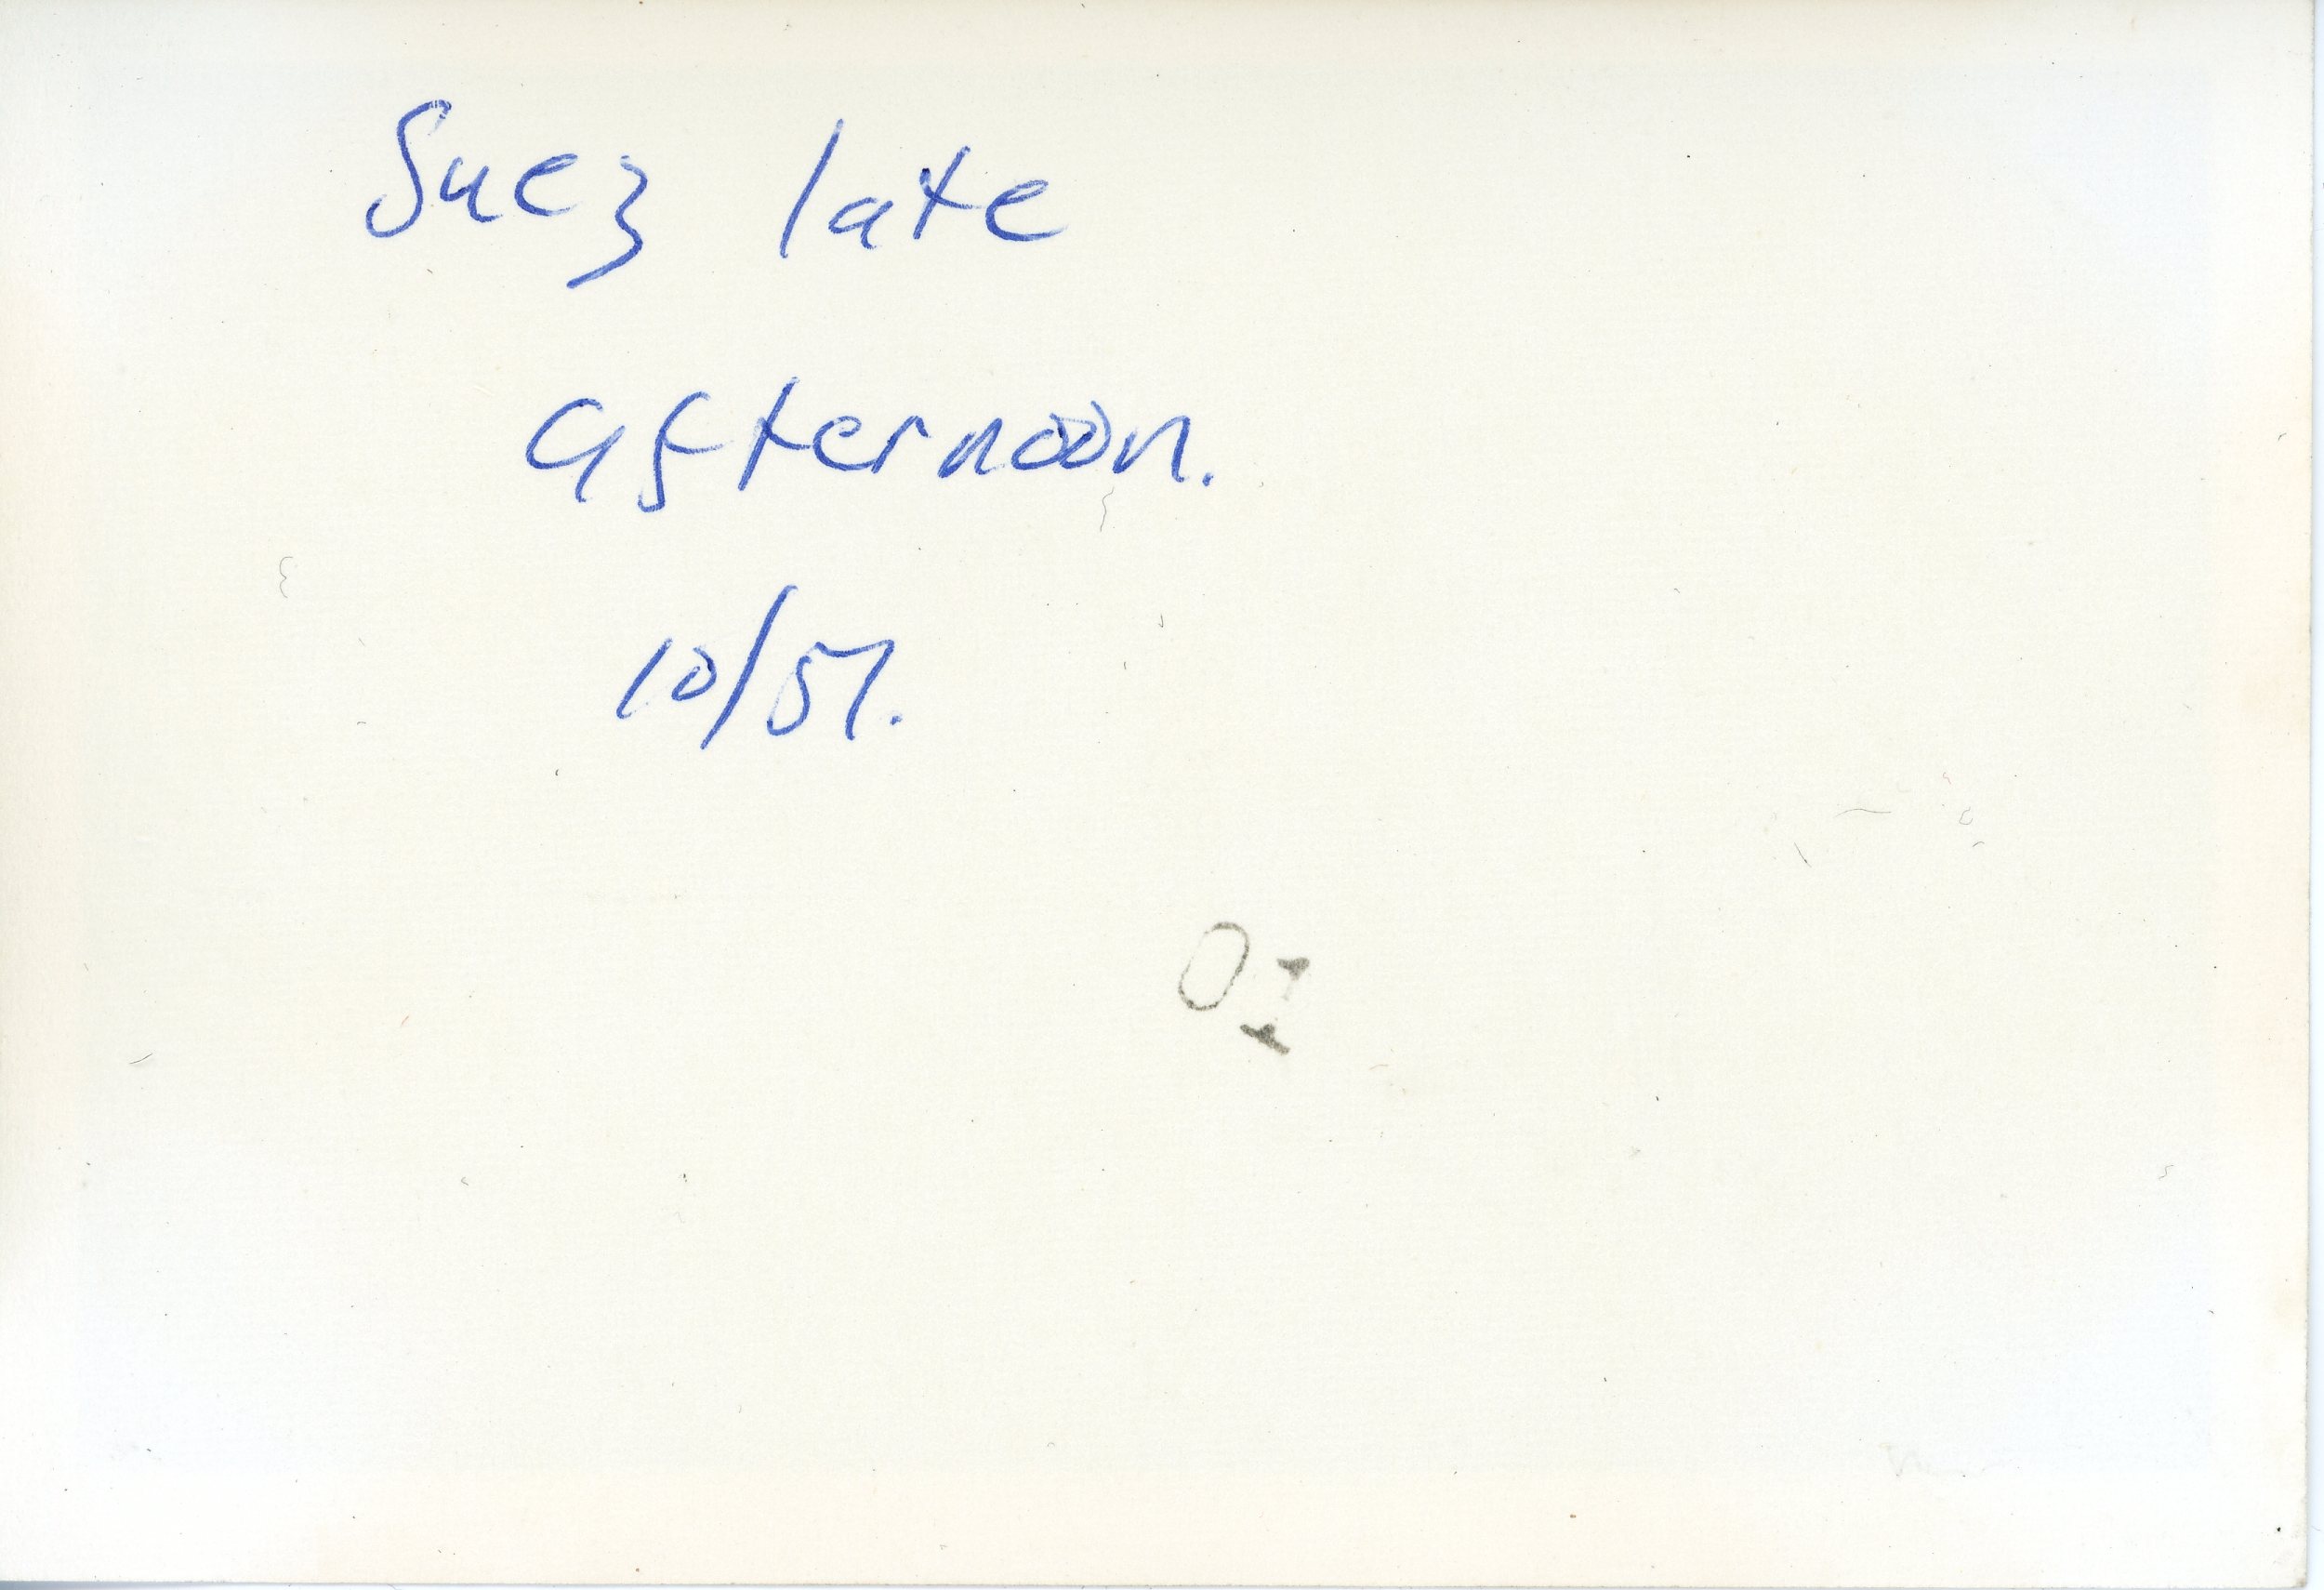 Suez late
afternoon.
10/51.
01